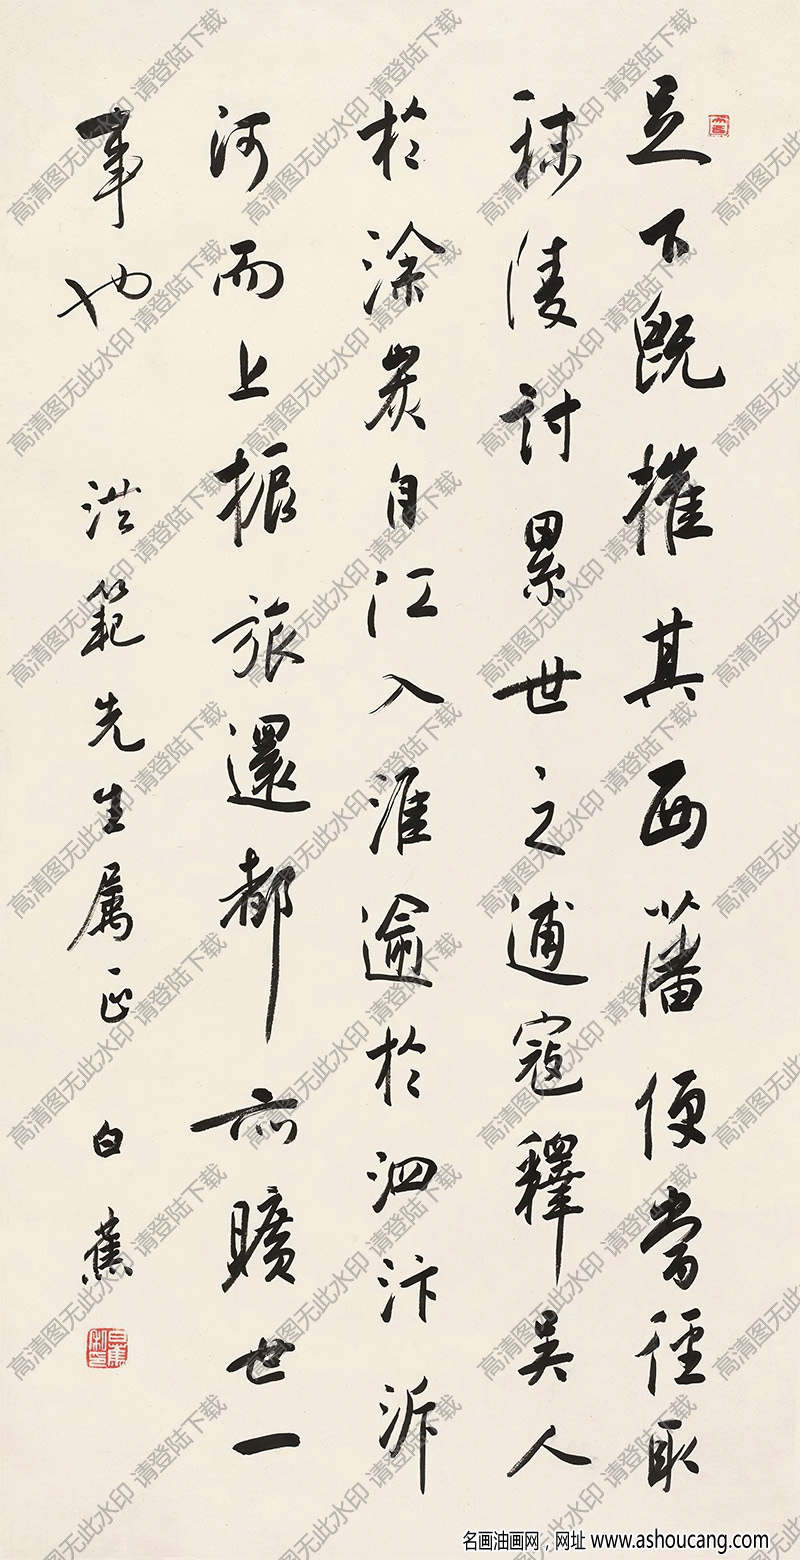 足下既摧其西藩便當徑取
秣陵討累世之逋寇釋吳人
於塗炭自江入淮逾於泗汴泝
河而上振旅還都亦曠世一
事也
洪範先生属正
白蕉
高清图无此水印 请登陆下载
名画油画网，网址 www.ashoucang.com